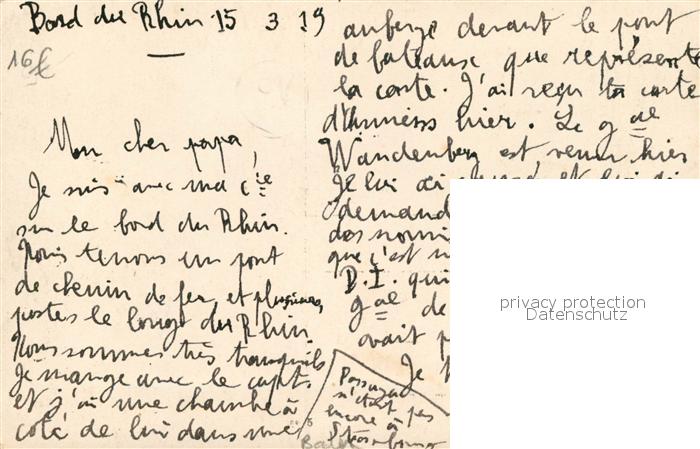 Bord du Rhin 15 3 19
16 €
Mon cher papa,
Je suis avec ma Cie
sur le bord du Rhin.
Nous tenons un pont
de chemin de fer, et plusieurs
postes le long du Rhin
Nous sommes très tranquils
Je mange avec le capt.
et j'ai une chambre à
coté de lui dans une
auberge devant le pont
de bateaux que représente
la carte. J'ai reçu ta carte
d'Amiens hier. Le gal
Wandenberg est venu hier
Je lui ai et lui ai
demand
des nouv
que c'est
D.I. qui
gal de
avait
Je
n'était pas
encore à
Strasbourg
privacy protection
Datenschutz